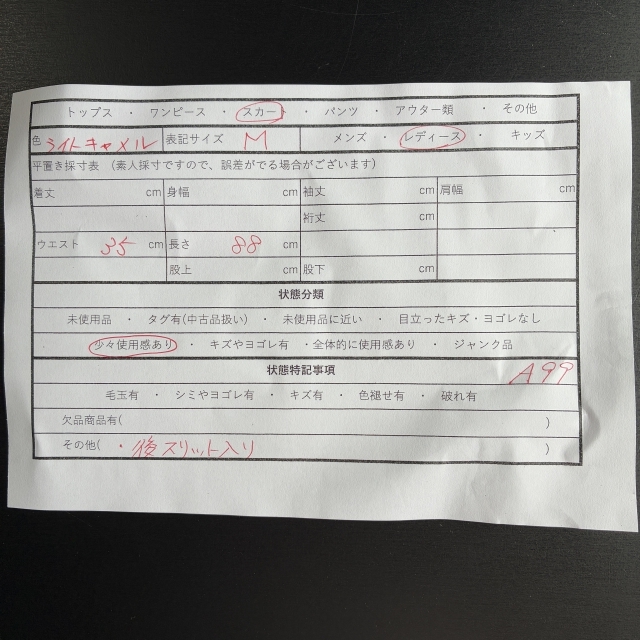 トップス ・ ワンピース ・ スカート ・ パンツ ・ アウター類 ・ その他
色 ライトキャメル 表記サイズ M メンズ ・ レディース ・ キッズ
平置き採寸表 (素人採寸ですので、誤差がでる場合がございます)
着丈 cm 身幅 cm 袖丈 cm 肩幅 cm
裄丈 cm
ウエスト 35 cm 長さ 88 cm
股上 cm 股下 cm
状態分類
未使用品 ・ タグ有(中古品扱い) ・ 未使用品に近い ・ 目立ったキズ・ヨゴレなし
少々使用感あり ・ キズやヨゴレ有 ・全体的に使用感あり ・ ジャンク品
状態特記事項 A99
毛玉有 ・ シミやヨゴレ有 ・ キズ有 ・ 色褪せ有 ・ 破れ有
欠品商品有( )
その他( ・後スリット入り )